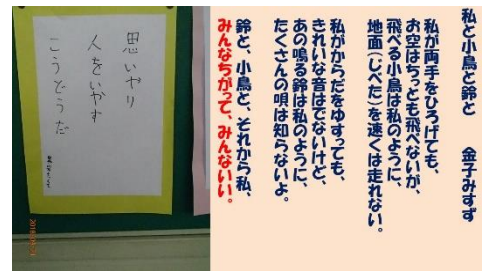 私と小鳥と鈴と　金子みすゞ
私が両手をひろげても、
お空はちっとも飛べないが、
飛べる小鳥は私のように、
地面（じべた）を速くは走れない。
私がからだをゆすっても、
きれいな音はでないけど、
あの鳴る鈴は私のように、
たくさんの唄は知らないよ。
鈴と、小鳥と、それから私、
みんなちがって、みんないい。
思いやり
人をいやす
こうどうだ